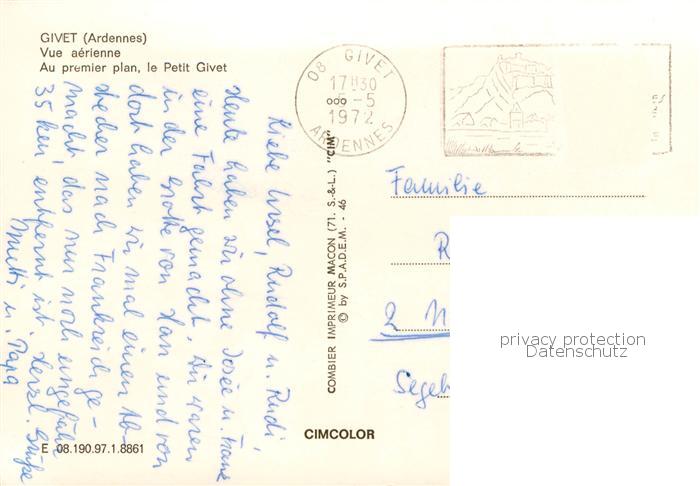 GIVET (Ardennes)
Vue aérienne
Au premier plan, le Petit Givet
08 GIVET
17H30
5-5
1972
ARDENNES
Liebe Ursel, Rudolf u. Rudi,
Heute haben wir ohne Josée u. Franz
eine Fahrt gemacht. Wir waren
in der Grotte von Han und von
dort haben wir mal einen Ab-
stecher nach Frankreich ge-
macht, das nur noch ungefähr
35 km entfernt ist. Herzl. Grüße
Mutti u. Papa
COMBIER IMPRIMEUR MACON (71. S.-&-L.) "CIM"
© by S.P.A.D.E.M. - 46
Familie
R
2 N
Segeb
privacy protection
Datenschutz
CIMCOLOR
E 08.190.97.1.8861